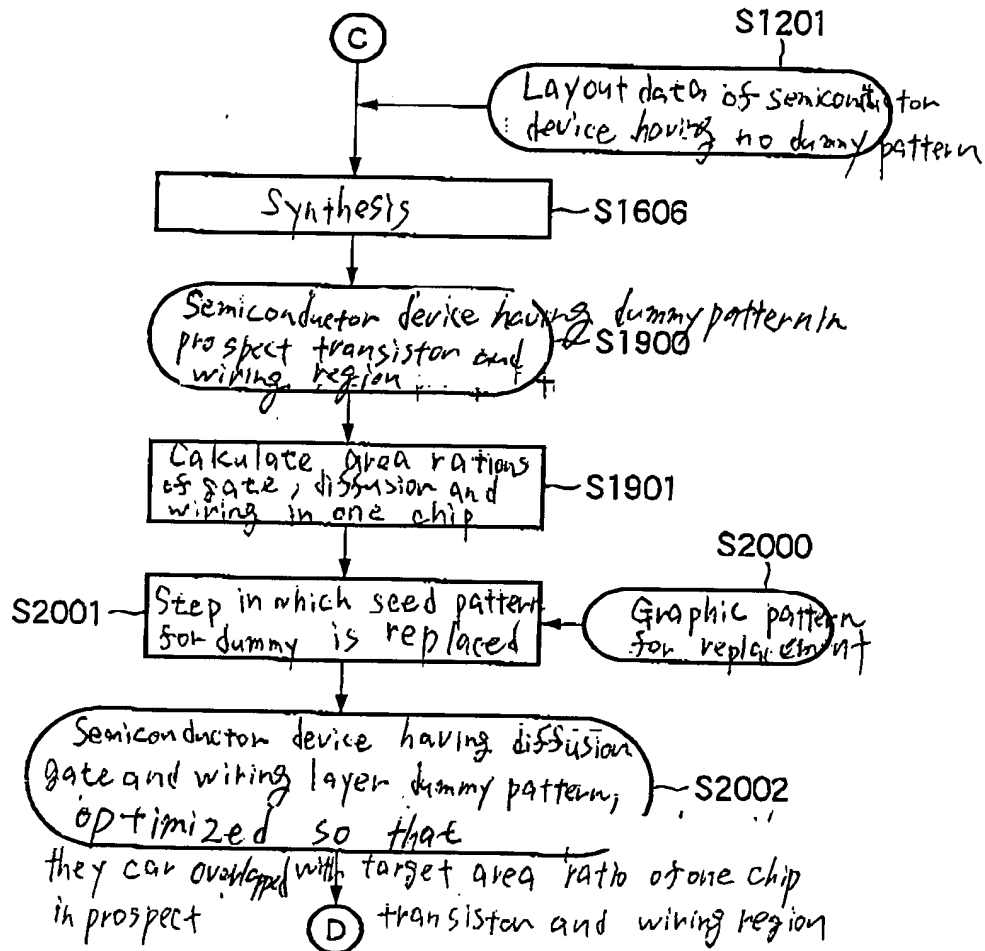 C
S1201
Layout data of semiconductor
device having no dummy pattern
Synthesis
S1606
Semiconductor device having dummy pattern in
prospect transistor and
wiring region
S1900
Calculate area rations
of gate, diffusion and
wiring in one chip
S1901
S2000
S2001
Step in which seed pattern
for dummy is replaced
Graphic pattern
for replacement
Semiconductor device having diffusion
gate and wiring layer dummy pattern,
optimized so that
S2002
they car overlapped with target area ratio of one chip
in prospect transistor and wiring region
D